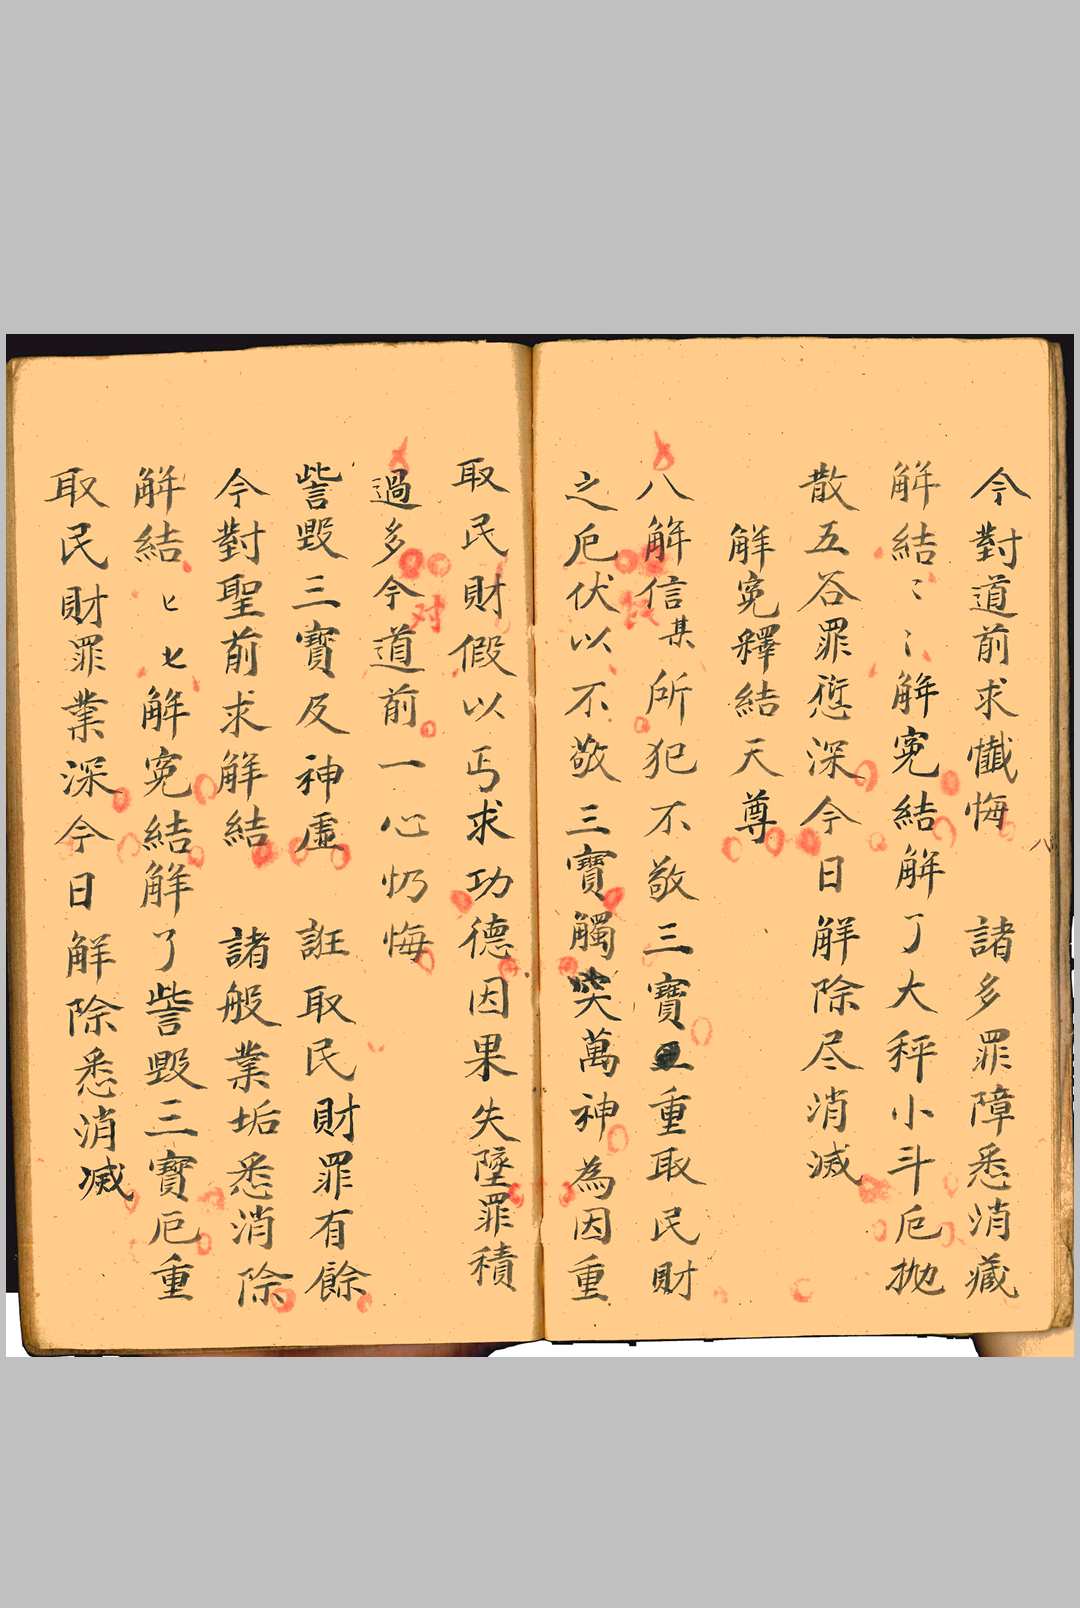 今對道前求懺悔 諸多罪障悉消藏
解結〻〻解寃結解了大秤小斗戹抛
散五谷罪愆深今日解除尽消滅
解寃釋結天尊
八解信某所犯不敬三寶重取民財
之戹伏以不敬三寶觸突萬神為因重
取民財假以丐求功德因果失墜罪積
過多今道前一心忏悔
对
訾毀三寶及神虛 誑取民財罪有餘
今對聖前求解結 諸般業垢悉消除
解結匕匕解寃結解了訾毀三寶戹重
取民財罪業深今日解除悉消滅